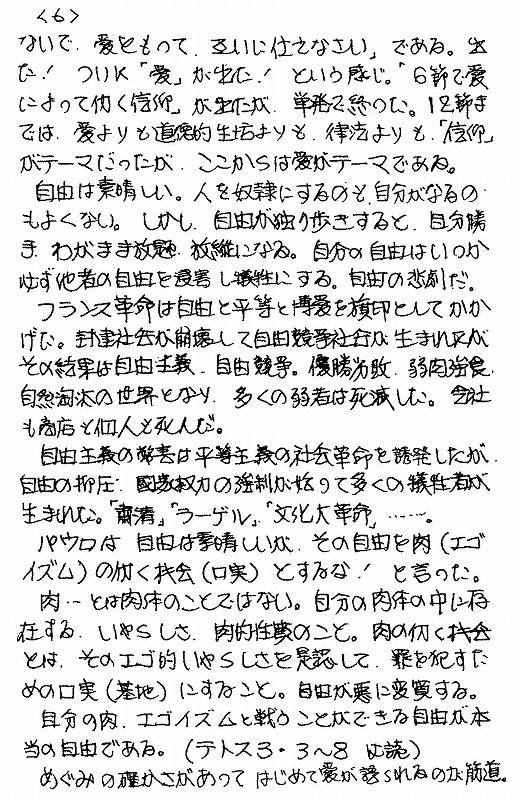 <6>
ないで、愛をもって、互いに仕えなさい」である。出
た! ついに「愛」が出た! という感じ。「6節で愛
によって働く信仰」が出たが、単発で終った。12節ま
では、愛よりも道徳的生活よりも、律法よりも、「信仰」
がテーマだったが、ここからは愛がテーマである。
自由は素晴しい。人を奴隷にするのも、自分がなるの
もよくない。しかし、自由が独り歩きすると、自分勝
手、わがまま放題、放縦になる。自分の自由はいつか
必ず他者の自由を侵害し犠牲にする。自由の悲劇だ。
フランス革命は自由と平等と博愛を旗印としてかか
げた。封建社会が崩壊して自由競争社会が生まれたが
その結果は自由主義、自由競争。優勝劣敗、弱肉強食、
自然淘汰の世界となり、多くの弱者は死滅した。会社
も商店も個人も死んだ。
自由主義の弊害は平等主義の社会革命を誘発したが、
自由の抑圧、国家権力の強制が始って多くの犠牲者が
生まれた。「粛清」、「ラーゲル」、「文化大革命」……。
パウロは、自由は素晴しいが、その自由を肉(エゴ
イズム)の働く機会(口実)とするな! と言った。
肉…とは肉体のことではない。自分の肉体の中に存
在する、いやらしさ、肉的性質のこと。肉の働く機会
とは、そのエゴ的いやらしさを是認して、罪を犯すた
めの口実(基地)にすること。自由が悪に変質する。
自分の肉、エゴイズムと戦うことができる自由が本
当の自由である。(テトス3・3~8 は読)
めぐみの確かさがあって はじめて愛が語られるのが筋道。